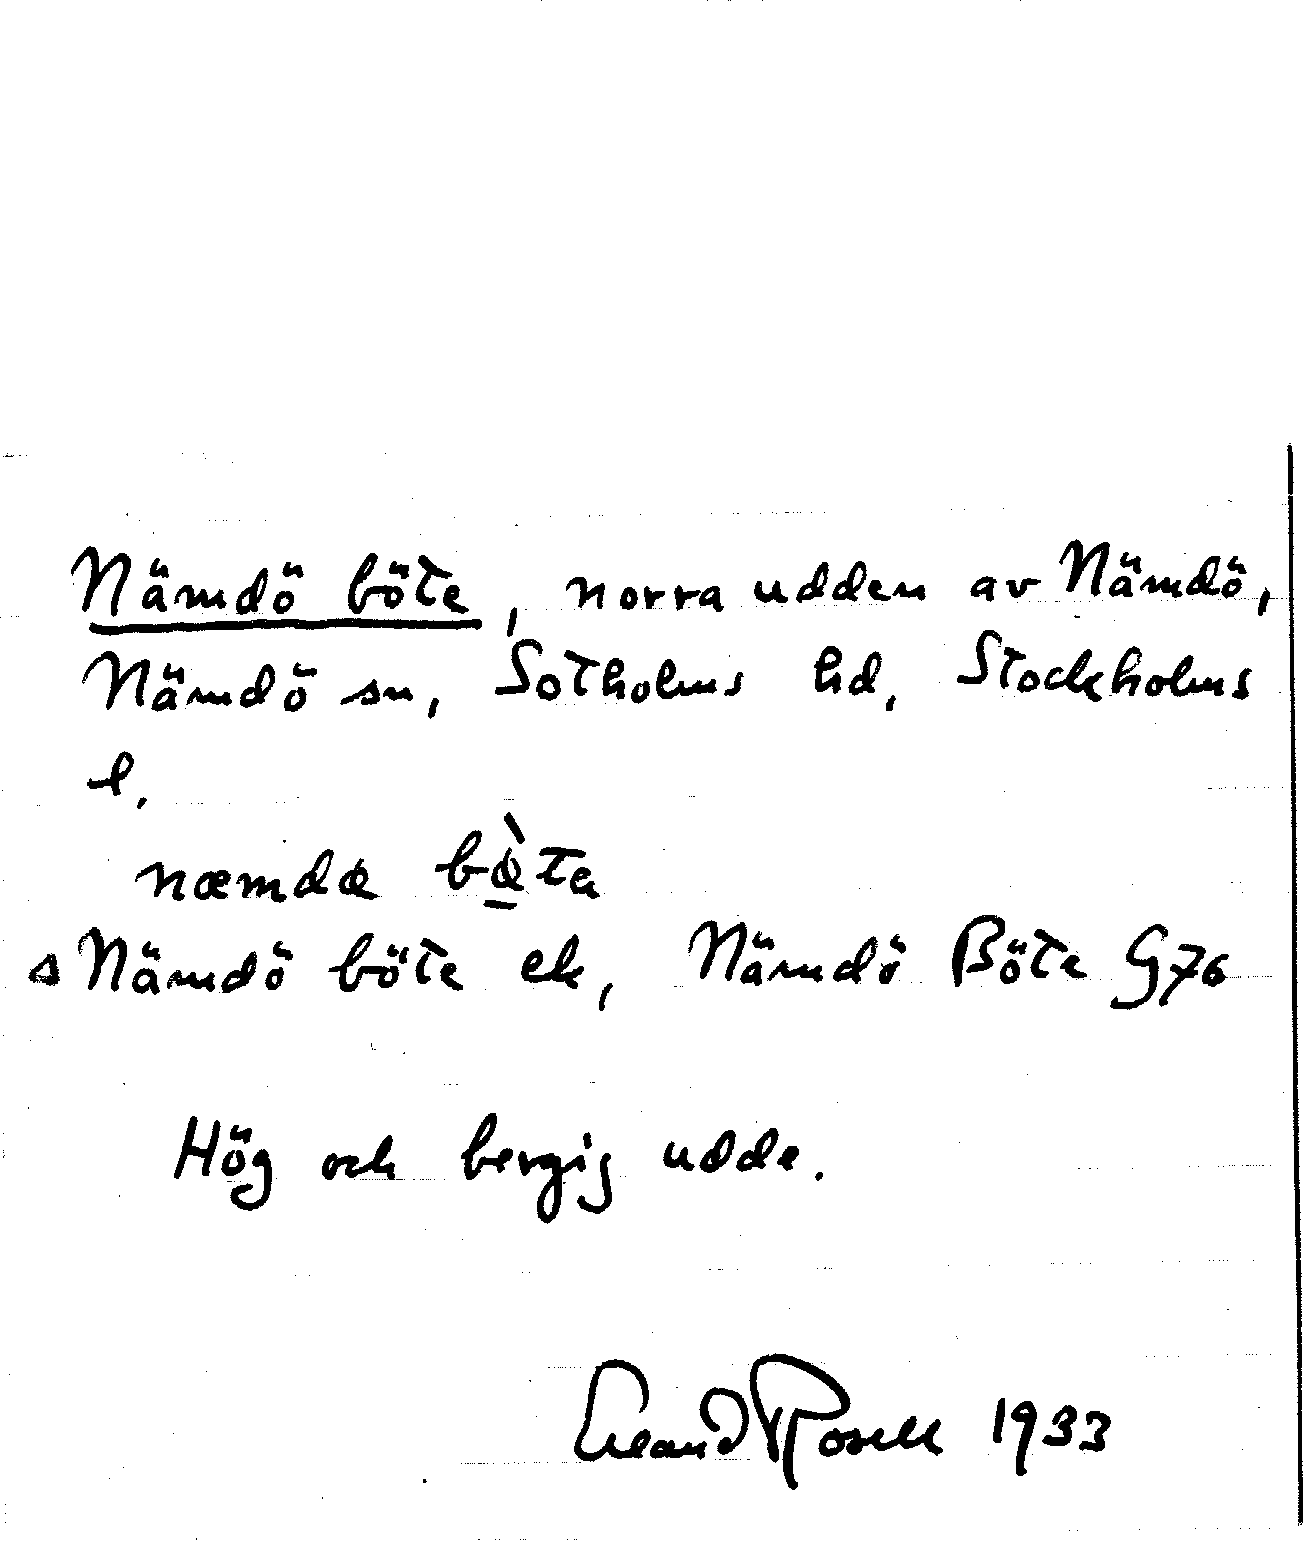 Nämdö böte, norra udden av Nämdö,
Nämdö sn, Sotholms hd, Stockholms
l.
næmdœ bœ̠̀ta
s Nämdö böte ek, Nämdö Böte G76
Hög och bergig udde.
Erland Rosell 1933